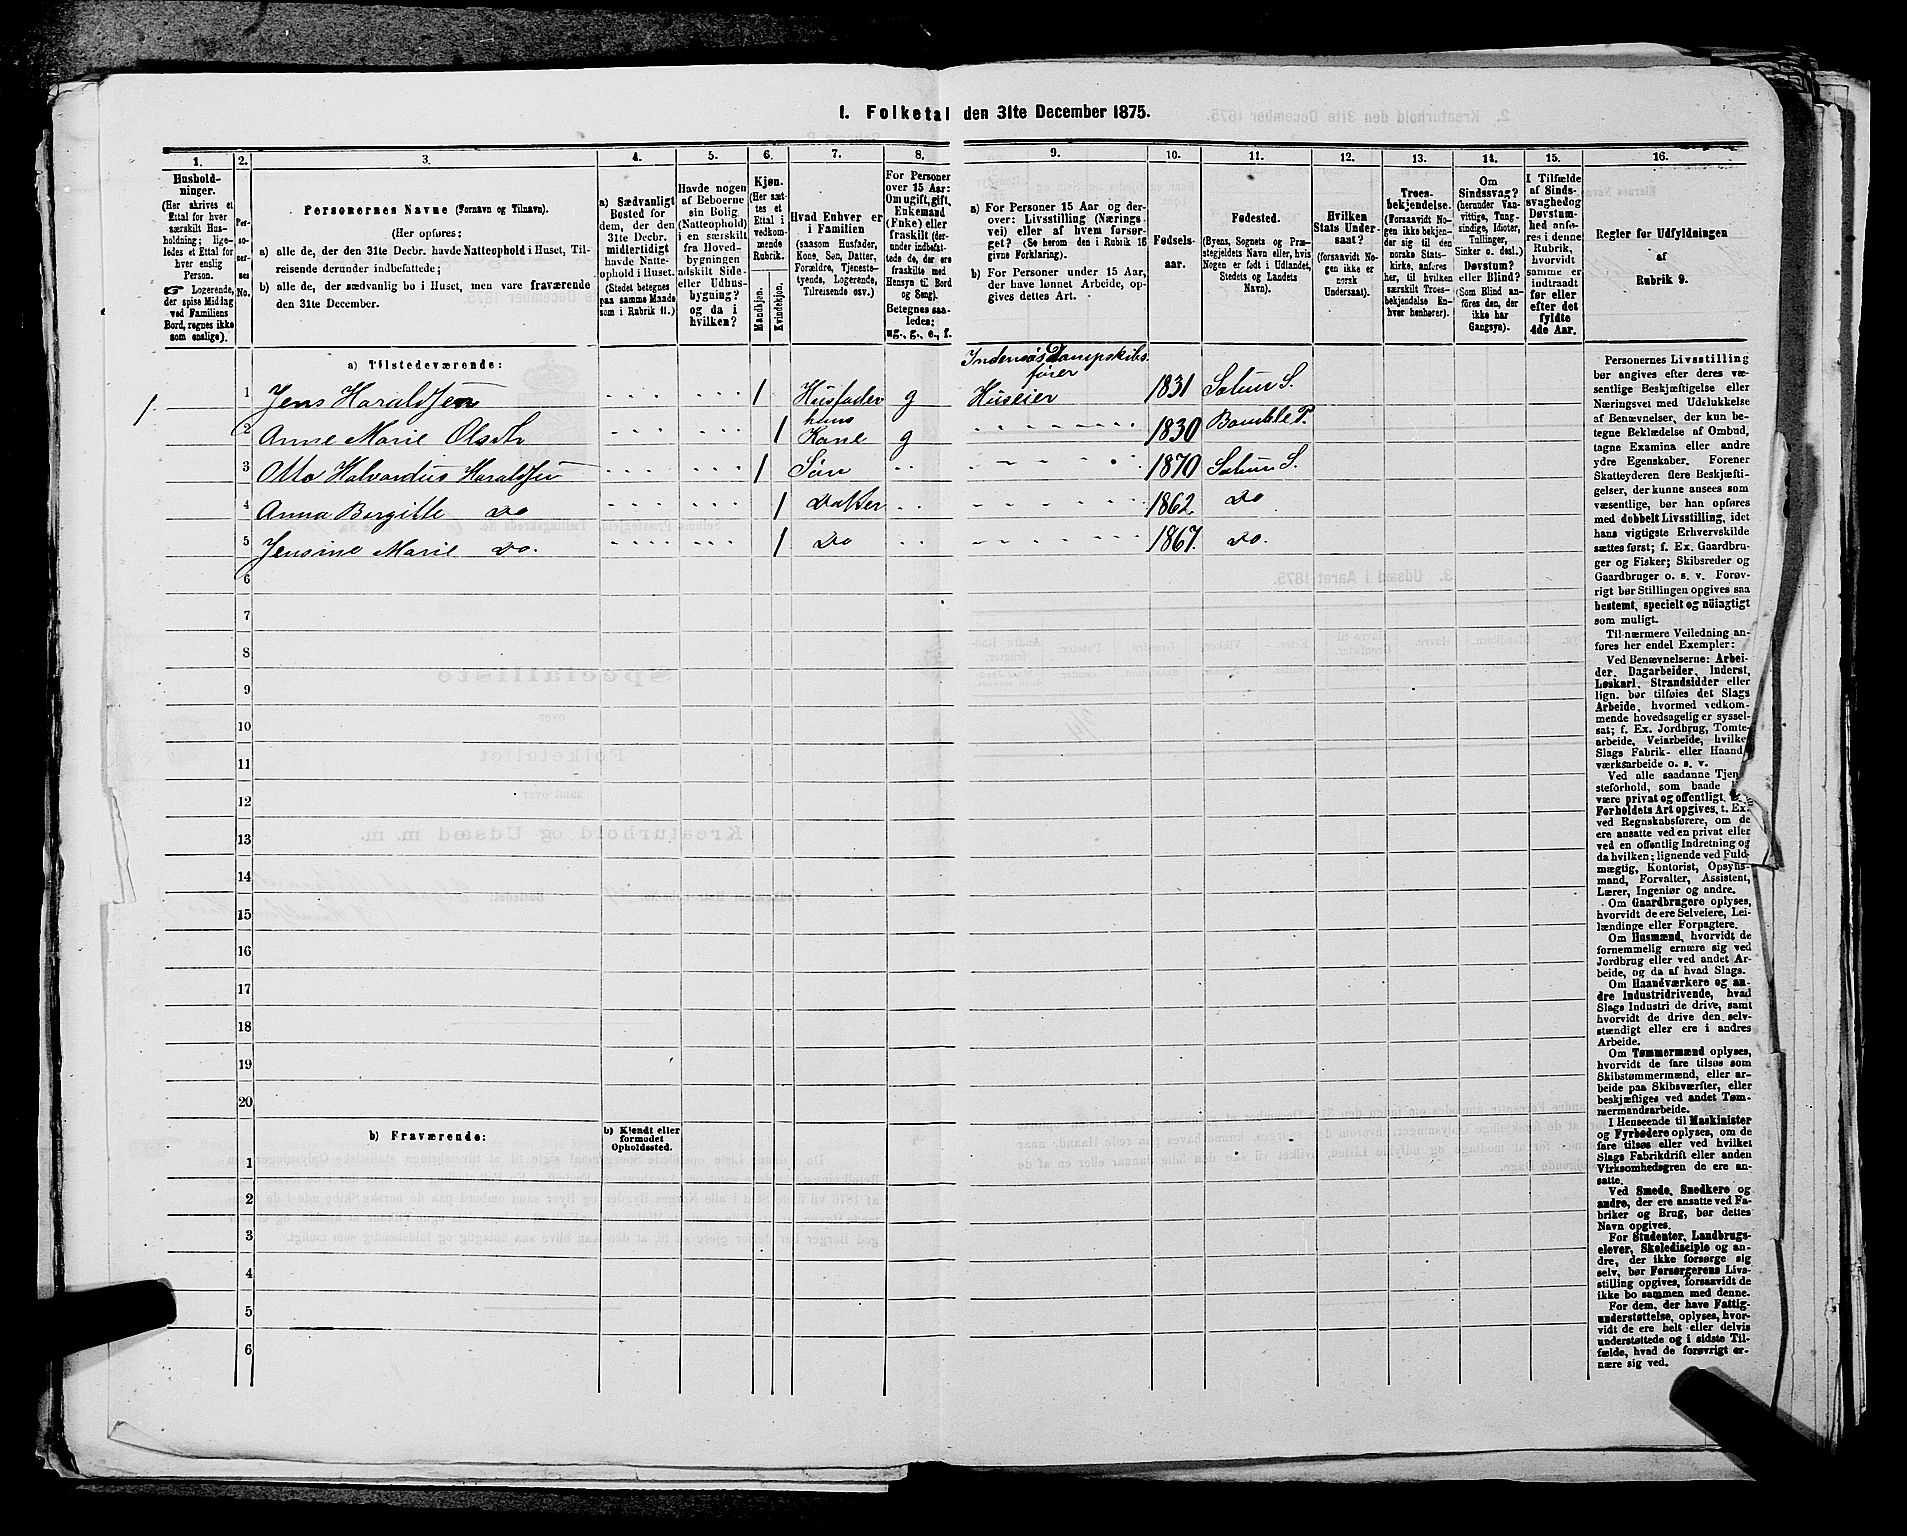 1. Folketal den 31te December 1875.
1. 2. 3. 4. 5. 6. 7. 8. 9. 10. 11. 12. 13. 14. 15. 16.
Hushold-
ninger.
(Her skrives et
Ettal for hver
særskilt Hus-
holdning; lige-
ledes et Ettal for
hver enslig
Person.
☞ Logerende,
der spise Middag
ved Familiens
Bord, regnes ikke
som enslige).
Per-
so-
ner-
nes
No.
Personernes Navne (Fornavn og Tilnavn).
(Her opføres:
a) alle de, der den 31te Decbr. havde Natteophold i Huset, Til-
reisende derunder indbefattede;
b) alle de, der sædvanlig bo i Huset, men vare fraværende
den 31te December.
a) Sædvanligt
Bosted for
dem, der den
31te Decbr.
midlertidigt
havde Natte-
ophold i Huset.
(Stedet betegnes
paa samme Maade
som i Rubrik 11.)
Havde nogen
af Beboerne
sin Bolig
(Natteophold)
i en særskilt
fra Hoved-
bygningen
adskilt Side-
eller Udhus-
bygning?
og da i
hvilken?
Kjøn.
(Her sæt-
tes et
Ettal i
vedkom-
mende
Rubrik.
Mandkjøn.
Kvindekjøn.
Hvad Enhver er
i Familien
(saasom Husfader,
Kone, Søn, Datter,
Forældre, Tjeneste-
tyende, Logerende,
Tilreisende osv.)
For Personer
over 15 Aar:
Om ugift, gift,
Enkemand
(Enke) eller
fraskilt (der-
under indbefat-
tede de, der ere
fraskilte med
Hensyn til Bord
og Seng).
Betegnes saa-
ledes:
ug., g., e., f.
a) For Personer 15 Aar og der-
over: Livsstilling (Nærings-
vei) eller af hvem forsør-
get? (Se herom den i Rubrik 16
givne Forklaring).
b) For Personer under 15 Aar,
der have lønnet Arbeide, op-
gives dettes Art.
Fødsels-
aar.
Fødested.
(Byens, Sognets og Præ-
stegjeldets Navn eller, hvis
Nogen er født i Udlandet,
Stedets og Landets
Navn).
Hvilken
Stats Under-
saat?
(forsaavidt No-
gen ikke er
norsk
Undersaat).
Troes-
bekjendelse.
(Forsaavidt No-
gen ikke bekjen-
der sig til den
norske Stats-
kirke, anføres
her, til hvilken
særskilt Troes-
bekjendelse En-
hver henhører).
Om
Sindssvag?
(herunder Van-
vittige, Tung-
sindige, Idioter,
Tullinger,
Sinker o. desl.)
Døvstum?
eller Blind?
(Som Blind an-
føres den, der
ikke har
Gangsyn).
I Tilfælde
af Sinds-
svaghed og
Døvstum-
hed anfø-
res i denne
Rubrik,
hvorvidt
samme er
indtraadt
før eller
efter det
fyldte
4de Aar.
Regler for Udfyldningen
af
Rubrik 9.
a) Tilstedeværende:
Indensøs Dampskibs
fører
1. 1 Jens Haraldsen 1 Husfader g Huseier 1831 Solum S.
2 Anne Marie Olsdtr 1 hans Kone g 1830 Bamble P.
3 Otto Halvardus Haraldsen 1 Søn 1870 Solum S.
4 Anna Bergitte do 1 Datter 1862 do
5 Jensine Marie do. 1 do 1867. do.
6
7
8
9
10
11
12
13
14
15
16
17
18
19
20
b) Fraværende:
b) Kjendt eller
formodet
Opholdssted.
1
2
3
4
5
6
Personernes Livsstilling
bør angives efter deres væ-
sentlige Beskjæftigelse eller
Næringsvei med Udelukkelse
af Benævnelser, der kun be-
tegne Beklædelse af Ombud,
tagne Examina eller andre
ydre Egenskaber. Forener
Skatteyderen flere Beskjæfti-
gelser, der kunne ansees som
væsentlige, bør han opføres
med dobbelt Livsstilling, idet
hans vigtigste Erhvervskilde
sættes først; f. Ex. Gaardbru-
ger og Fisker; Skibsreder og
Gaardbruger o. s. v. Forøv-
rigt bør Stillingen opgives saa
bestemt, specielt og nöiagtigt
som muligt.
Til nærmere Veiledning an-
føres her endel Exempler:
Ved Benævnelserne: Arbei-
der, Dagarbeider, Inderst,
Løskarl, Strandsidder eller
lign. bør tilføies det Slags
Arbeide, hvormed vedkom-
mende hovedsagelig er syssel-
sat; f. Ex. Jordbrug, Tomte-
arbeide, Veiarbeide, hvilke
Slags Fabrik- eller Haand-
værksarbeide o. s. v.
Ved alle saadanne Tjene-
steforhold, som baade
være privat og offentligt,
Forholdets Art opgives, t. Ex.
ved Regnskabsførere, om de
ere ansatte ved en privat eller
ved en offentlig Indretning og
da hvilken; lignende ved Fuld-
mægtig, Kontorist, Opsyns-
mand, Forvalter, Assistent,
Lærer, Ingeniør og andre.
Om Gaardbrugere oplyses,
hvorvidt de ere Selveiere, Lei-
lændinge eller Forpagtere.
Om Husmænd, hvorvidt de
fornemmelig ernære sig ved
Jordbrug eller ved andet Ar-
beide, og da af hvad Slags.
Om Haandværkere og an-
dre Industridrivende, hvad
Slags Industri de drive, samt
hvorvidt de drive den selv-
stændigt eller ere i andres
Arbeide.
Om Tømmermænd oplyses,
hvorvidt de fare tilsøs som
Skibstømmermænd, eller ar-
beide paa Skibsværfter, eller
beskjæftiges ved andet Tøm-
mermandsarbeide.
I Henseende til Maskinister
og Fyrbødere oplyses, om de
fare tilsøs eller ved hvilket
Slags Fabrikdrift eller anden
Virksomhedsgren de ere an-
satte.
Ved Smede, Snedkere og
andre, der ere ansatte ved Fa-
briker og Brug, bør dettes
Navn opgives.
For Studenter, Landbrugs-
elever, Skoledisciple og an-
dre, der ikke forsørge sig
selv, bør Forsørgerens Livs-
stilling opgives, forsaavidt de
ikke bo sammen med denne.
For dem, der have Fattig-
understøttelse, oplyses, hvor-
vidt de ere helt eller delvis
understøttede og i sidste Til-
fælde, hvad de forøvrigt er-
nære sig ved.